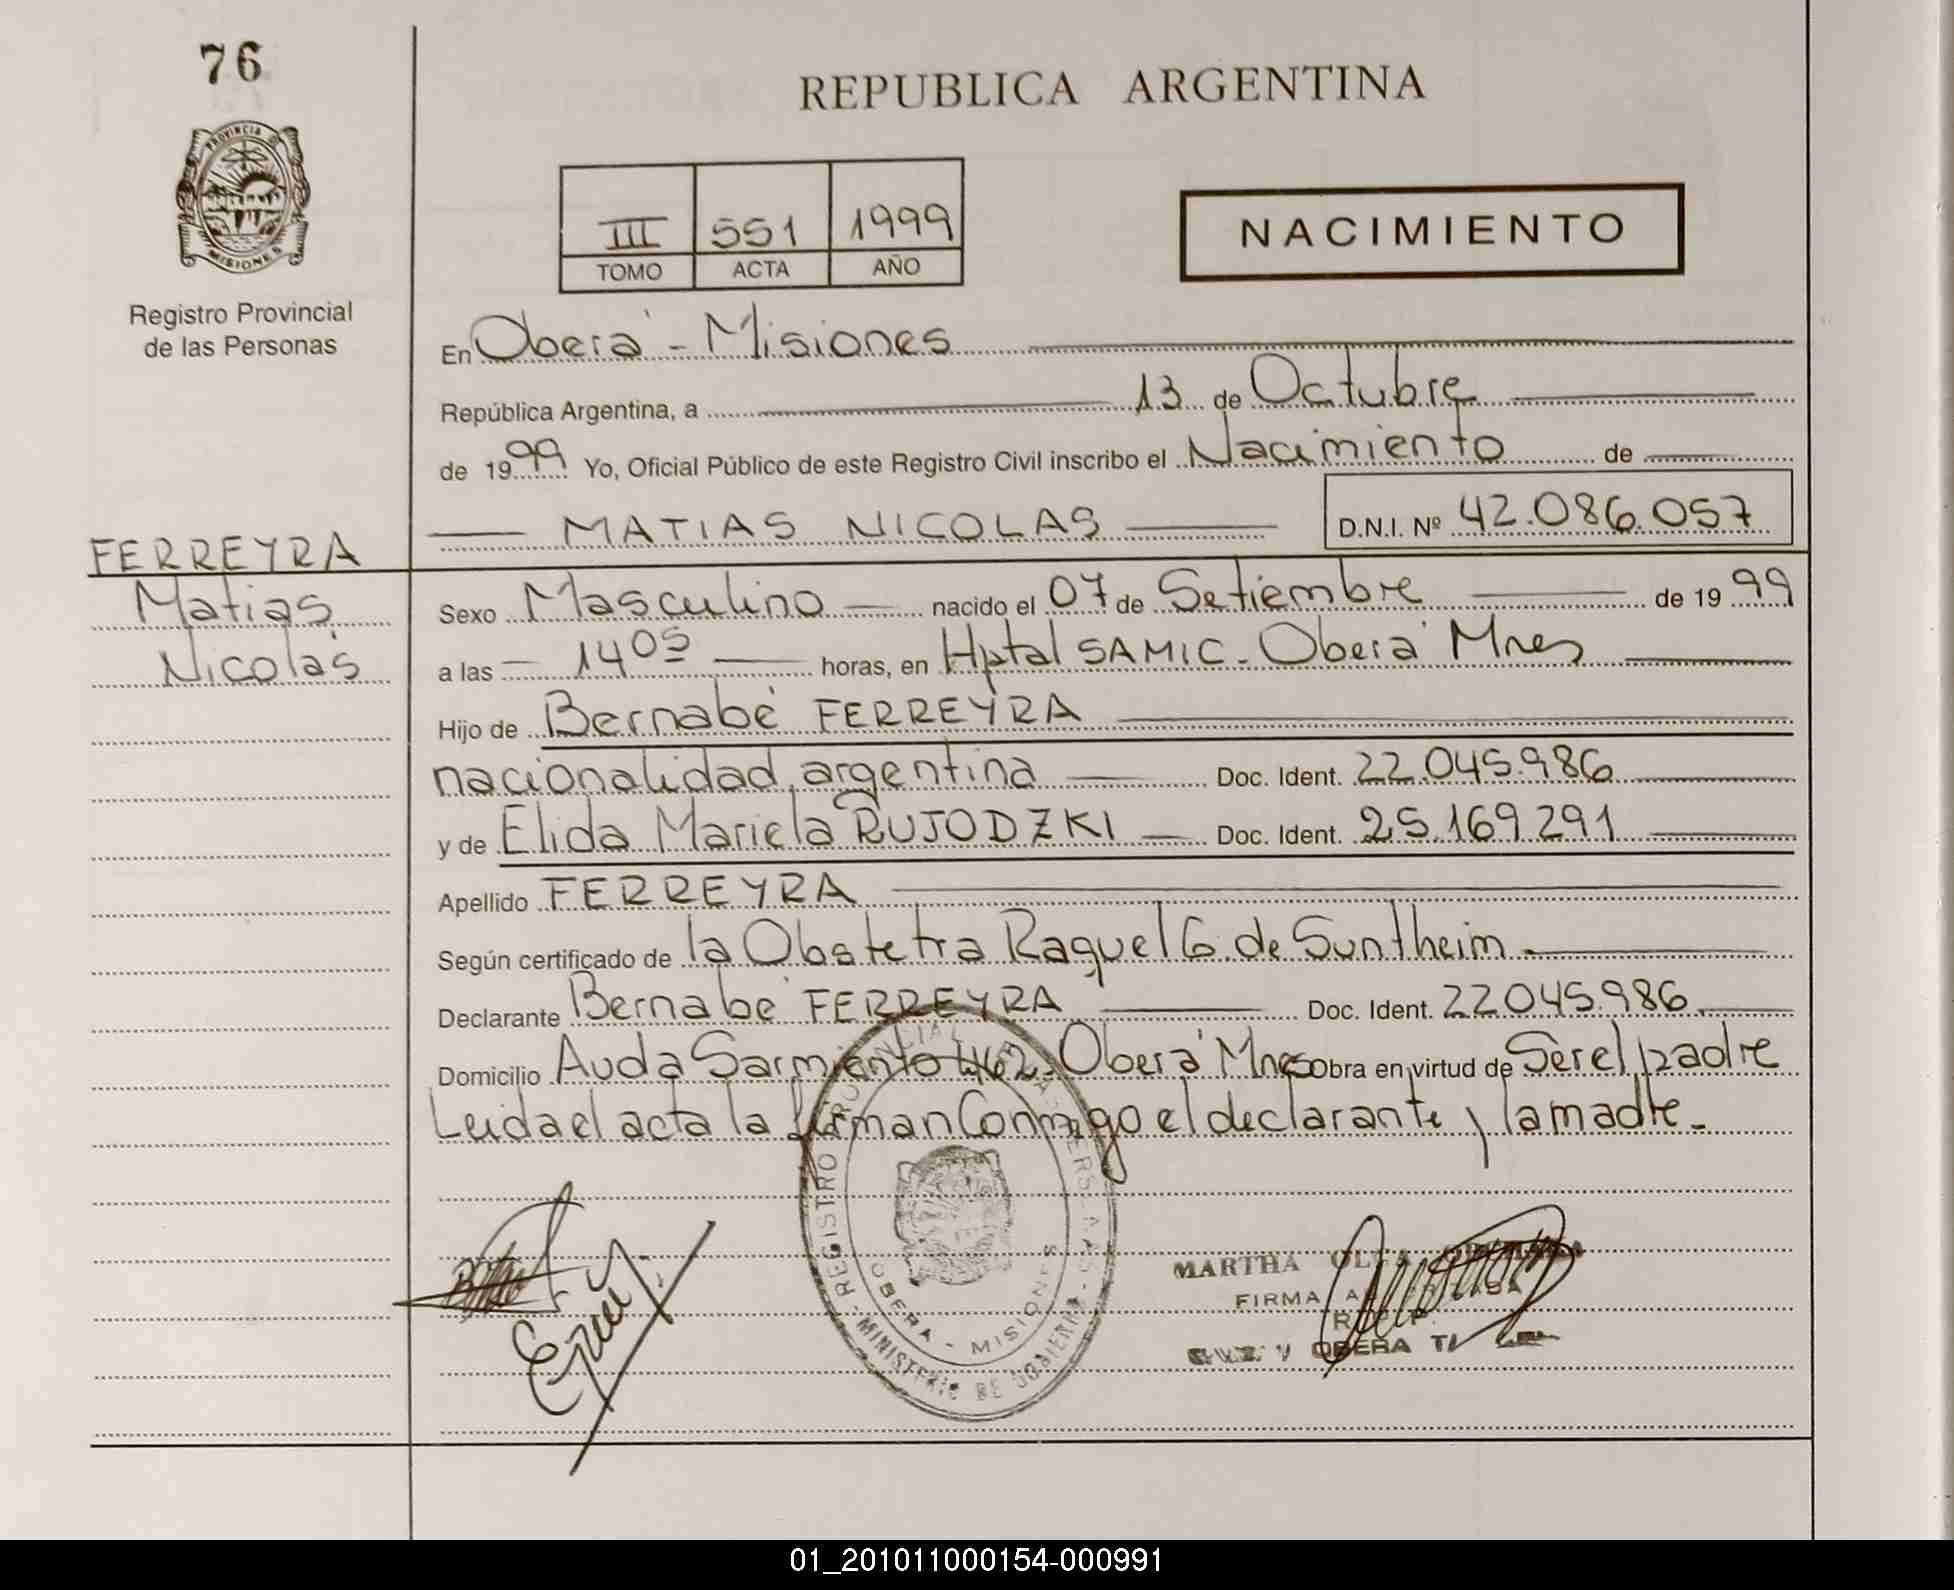 76
REPUBLICA ARGENTINA
PROVINCIA D
MISIONES
Registro Provincial
de las Personas
III 551 1999
TOMO ACTA AÑO
NACIMIENTO
En Oberá - Misiones
República Argentina, a 13 de Octubre
de 1999 Yo, Oficial Público de este Registro Civil inscribo el Nacimiento de
MATIAS NICOLAS D.N.I. Nº 42.086.057
FERREYRA
Matias
Nicolas
Sexo Masculino nacido el 07 de Setiembre de 1999
a las 14 05 horas, en Hptal SAMIC - Oberá Mnes
Hijo de Bernabé FERREYRA
nacionalidad argentina Doc. Ident. 22.045.986
y de Elida Mariela RUJODZKI Doc. Ident. 25.169.291
Apellido FERREYRA
Según certificado de la Obstetra Raquel G. de Suntheim
Declarante Bernabé FERREYRA Doc. Ident. 22045.986
Domicilio Avda Sarmiento 462 Oberá Mnes Obra en virtud de Ser el padre
Leida el acta la firman Conmigo el declarante y la madre.
REGISTRO PROVINCIAL DE LAS PERSONAS
OBERA - MISIONES
MINISTERIO DE GOBIERNO
MARTHA OLGA
FIRMA
R. P. P.
OBERA
01_201011000154-000991